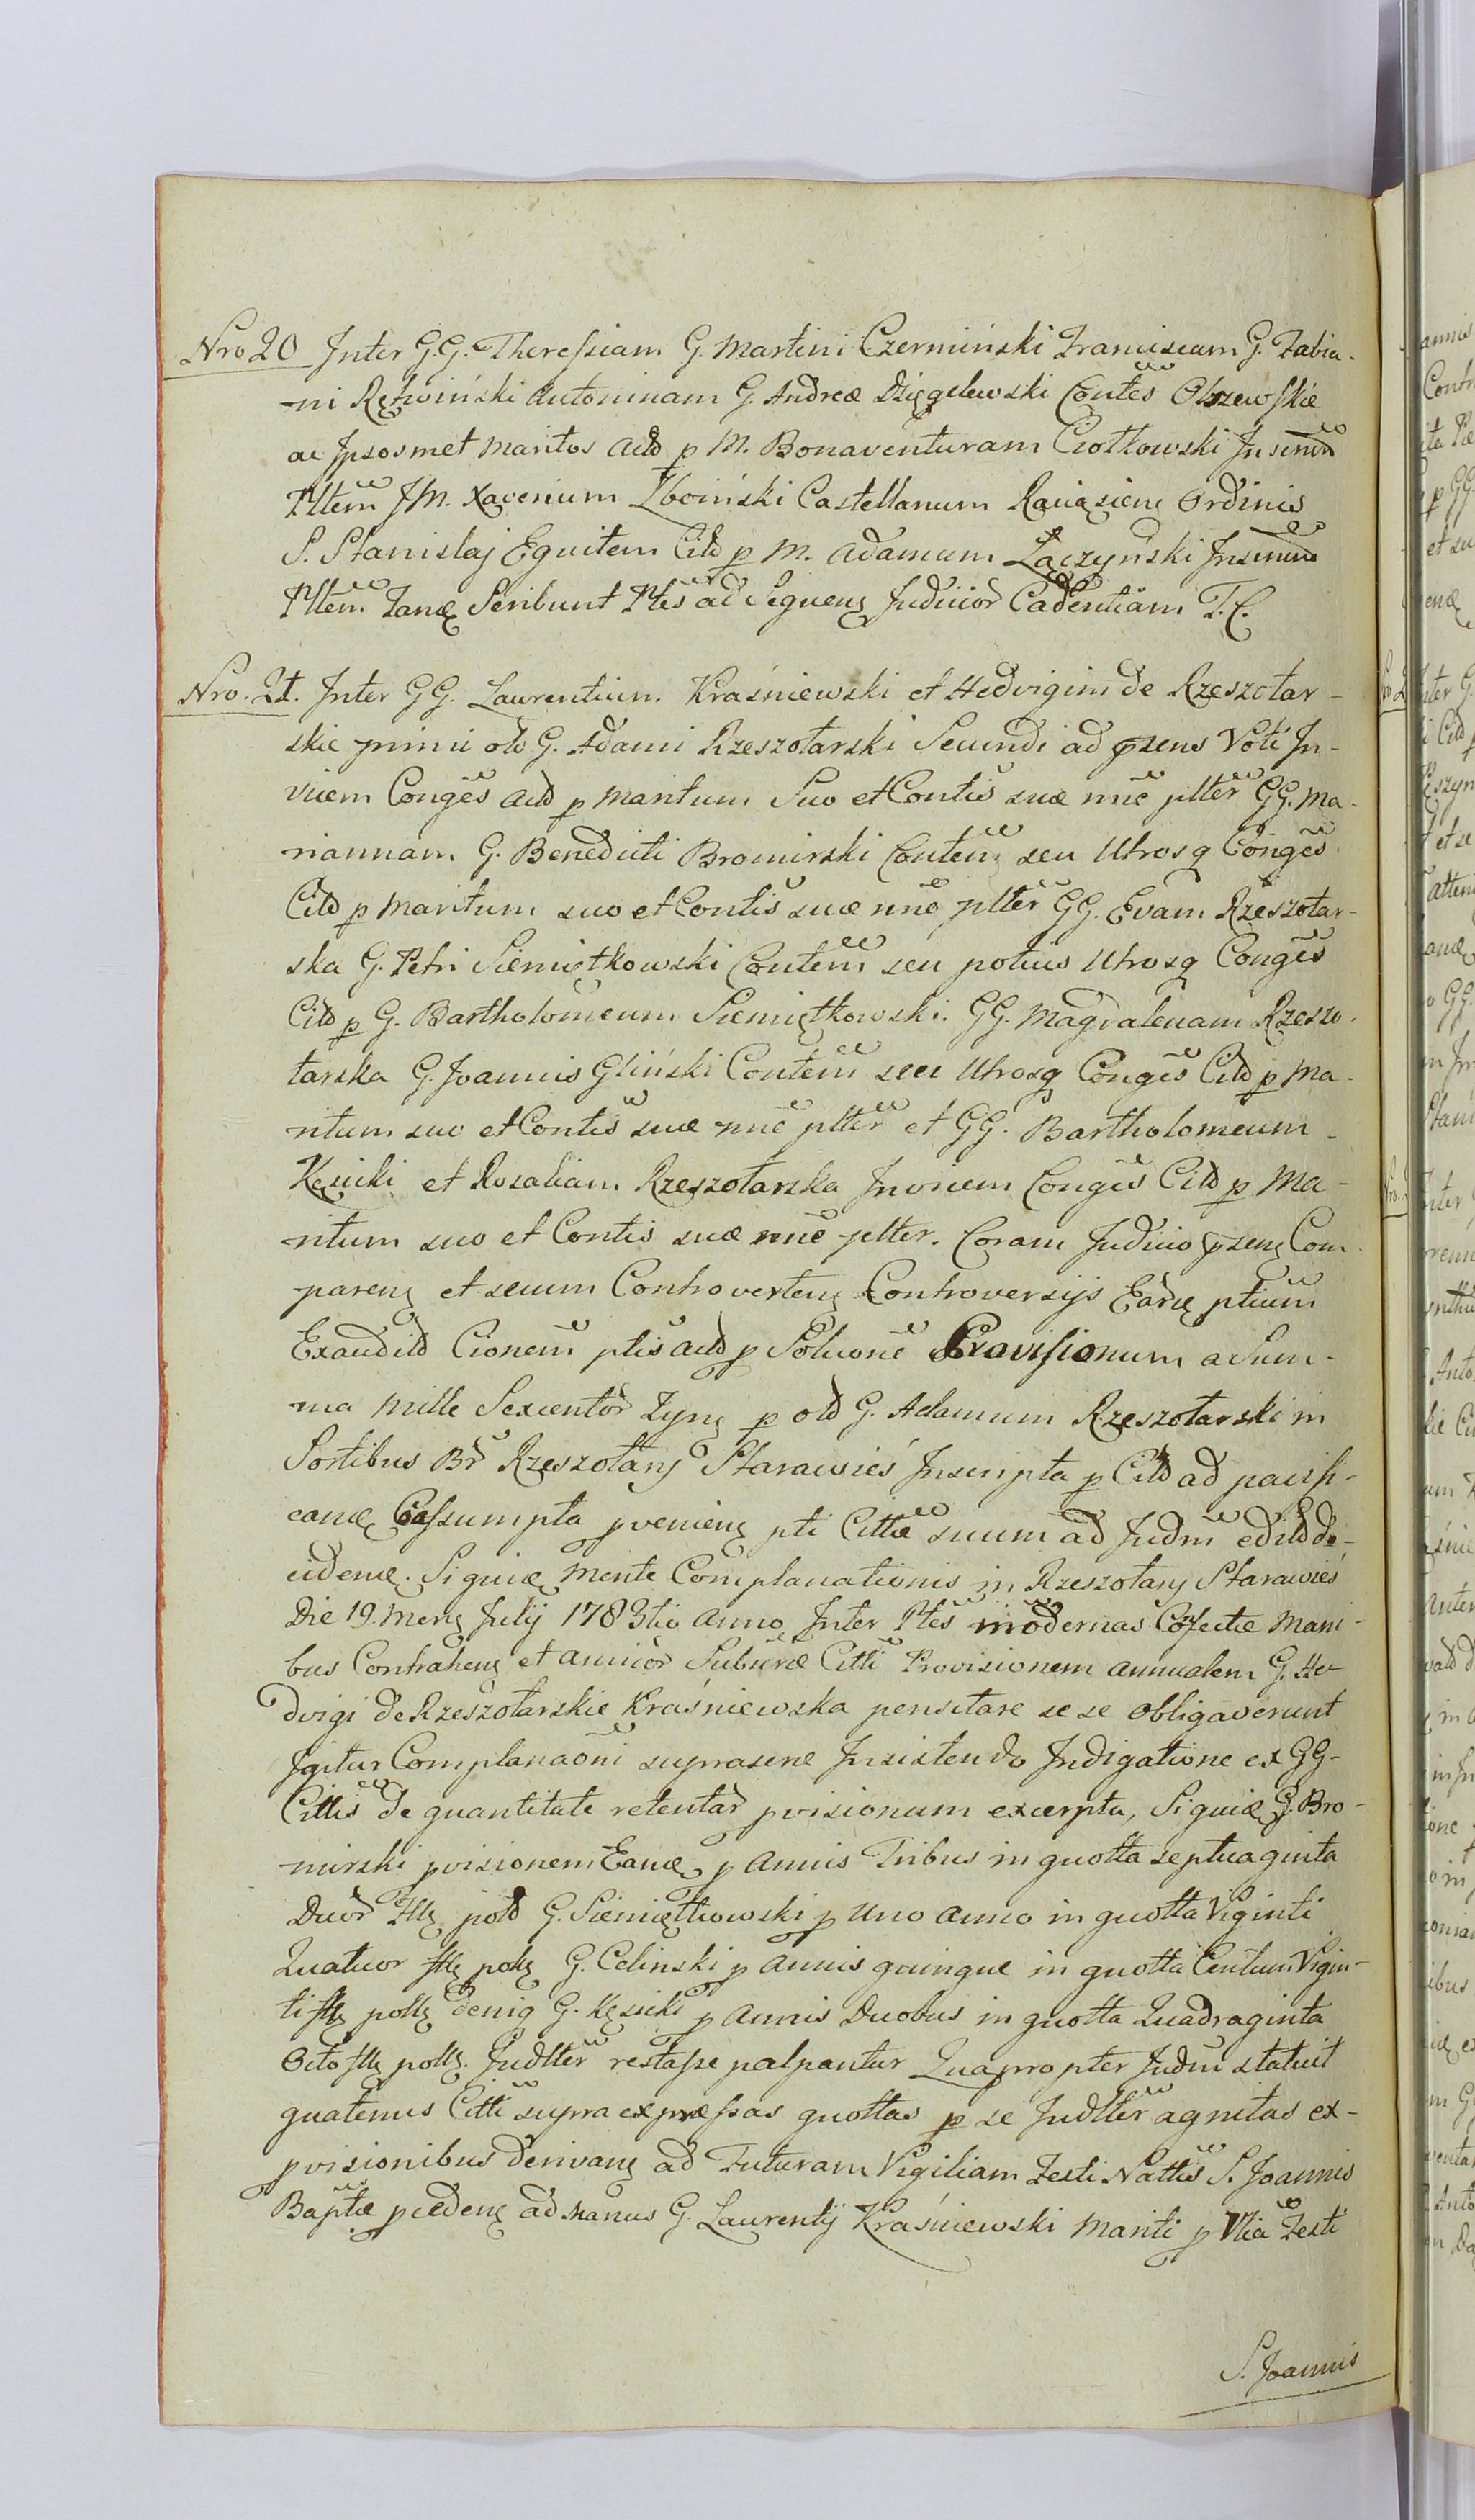 Nro 20 Inter G.G. Theressiam G. Martini Czermiński Franciscam G. Fabia-
ni Rętwiński Antoninam G. Andreæ Dzięgelewski Contes Olszewskie
ac Ipsosmet Maritos Actd p M. Bonaventuram Ciołkowski
Pltem JM. Xaverium Zboiński Castellanum Raciąziens Ordinis
S. Stanislaj Equitem Citd p M. Adamum Łączyński
Pltem Fanæ Scribunt Ptes ad Sequens Judicior Cadentiam T. C.
Nro. 21. Inter GG. Laurentium Kraśniewski et Hedvigim de Rzeszotar-
skie primi old G. Adami Rzeszotarski Secundi ad psens Voti In-
vicem Conges Actd p Maritum Suo et Contis suæ nne pltter GG. Ma-
riannam G. Benedicti Bromirski Contem seu Utrosq Conges
Citd p Maritum suo et Contis suæ nne pltter GG. Evam Rzeszotar-
ska G. Petri Siemiątkowski Contem seu potius Utrosq Conges
Citd p G. Bartholomeum Siemiątkowski. GG. Magdalenam Rzeszo-
tarska G. Joannis Gliński Contem seu Utrosq Conges Citd p Ma-
ritum suo et Contis suæ nne pltter et GG. Bartholomeum
Kęsicki et Rosaliam Rzeszotarska Invicem Conges Citd p Ma-
ritum suo et Contis suæ nne pltter. Coram Judicio psens Com-
parens et secum Controvertens Controversijs Earū ptium
Exaudītd Cionem ptis actd p Solucone Provisionum a Sum-
ma Mille Sexcentor Fyns p old G. Adamum Rzeszotarski in
Sortibus Br Rzeszotary Starawieś Inscripta p Citd ad pacifi-
canæ Cassumpta pveniens pti Cittæ suum ad Judm
cidenæ. Siquiæ Mente Complanationis in Rzeszotary Starawieś
Die 19. Mens July 1783tio Anno Inter Ptes modernas Cofectæ Mani-
bus Contrahens et amicor Subscræ Citti Provisionem annualem G. He-
dvigi de Rzeszotarskie Kraśniewska pensitare se se obligaverunt
Igitur Complanaoni suprascræ Insistendo Indigatione ex GG-
Cittis de quantitate retentar pvisionum excerpta, Siquiæ G. Bro-
mirski pvisionem Eanæ p Annis Tribus in quotta Septuaginta
Duor Flls G. Siemiątkowski p Uno anno in quotta Viginti
Quatuor flls polls G. Celinski p Annis quinque in quotta Centum Vigin-
ti flls polls deniq G. Kęsicki p Annis Duobus in quotta Quadraginta
Octo flls polls. Judtter restasse palpantur Quapropter Judm statuit
quatenus Citti supra expræssas quottas p se Judtter agnitas ex-
pvisionibus derivans ad Futuram Vigiliam Festi Nattis S. Joannis
Baptæ pcedens ad Manus G. Laurentij Kraśniewski Mariti p Vlia Festi
S. Joannis